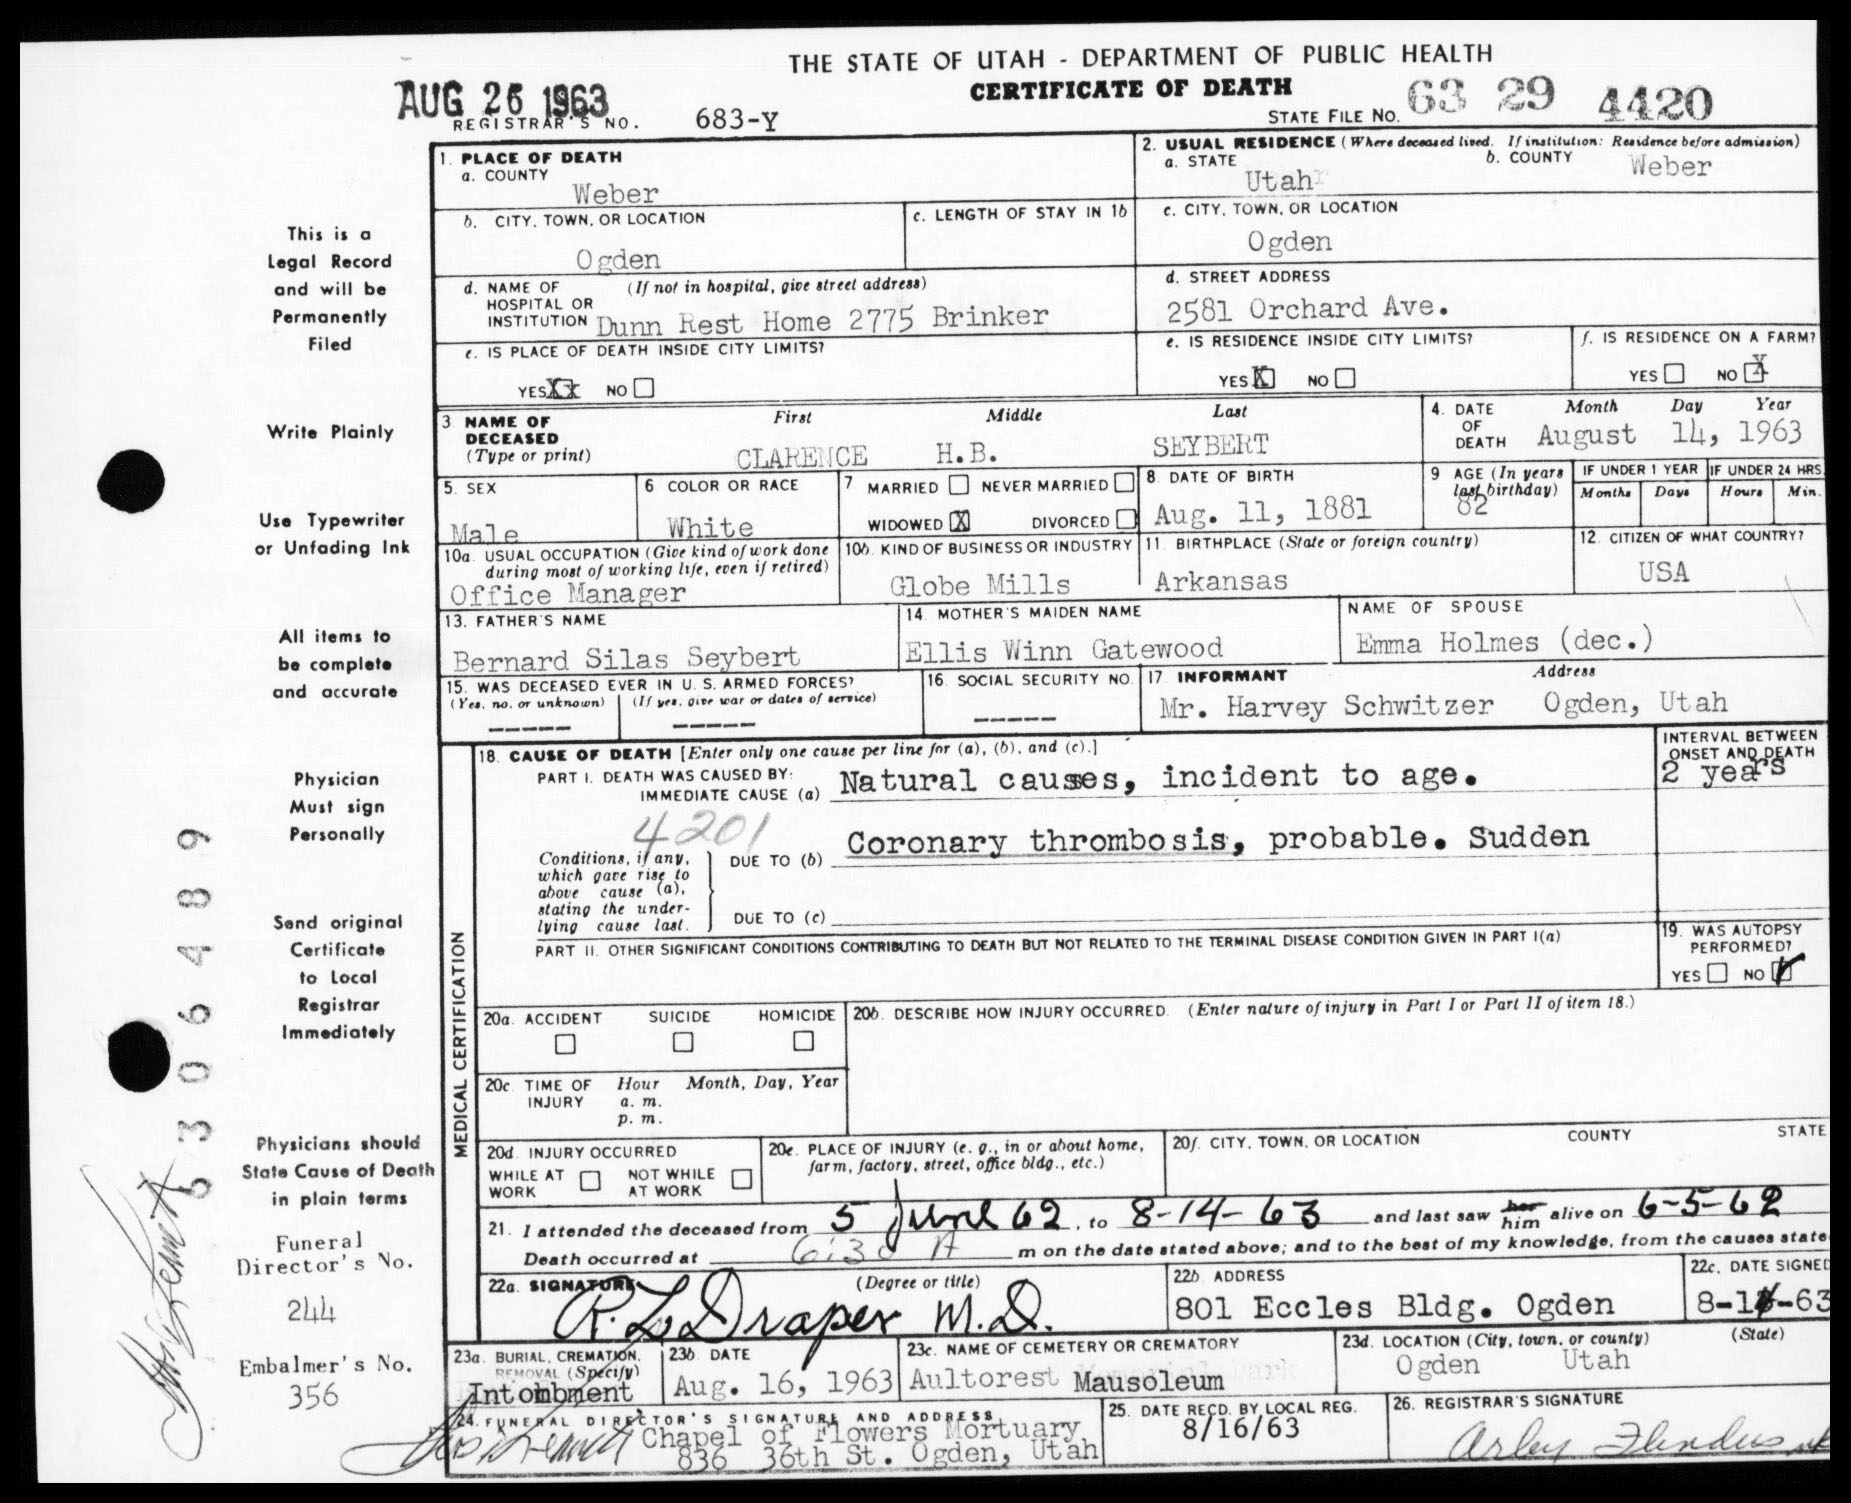 THE STATE OF UTAH - DEPARTMENT OF PUBLIC HEALTH
CERTIFICATE OF DEATH
AUG 26 1963
REGISTRAR'S NO. 683-Y
STATE FILE NO. 63 29 4420
1. PLACE OF DEATH
a. COUNTY
Weber
2. USUAL RESIDENCE (Where deceased lived. If institution: Residence before admission)
a. STATE
Utah
b. COUNTY
Weber
b. CITY, TOWN, OR LOCATION
Ogden
c. LENGTH OF STAY IN 1b
c. CITY, TOWN, OR LOCATION
Ogden
d. NAME OF HOSPITAL OR INSTITUTION
(If not in hospital, give street address)
Dunn Rest Home 2775 Brinker
d. STREET ADDRESS
2581 Orchard Ave.
e. IS PLACE OF DEATH INSIDE CITY LIMITS?
YES Xx NO
e. IS RESIDENCE INSIDE CITY LIMITS?
YES X NO
f. IS RESIDENCE ON A FARM?
YES NO X
3 NAME OF DECEASED
(Type or print)
First Middle Last
CLARENCE H.B. SEYBERT
4. DATE OF DEATH
Month Day Year
August 14, 1963
5. SEX
Male
6 COLOR OR RACE
White
7 MARRIED NEVER MARRIED
WIDOWED X DIVORCED
8. DATE OF BIRTH
Aug. 11, 1881
9 AGE (In years last birthday)
82
IF UNDER 1 YEAR
Months Days
IF UNDER 24 HRS.
Hours Min.
10a. USUAL OCCUPATION (Give kind of work done during most of working life, even if retired)
Office Manager
10b. KIND OF BUSINESS OR INDUSTRY
Globe Mills
11. BIRTHPLACE (State or foreign country)
Arkansas
12. CITIZEN OF WHAT COUNTRY?
USA
13. FATHER'S NAME
Bernard Silas Seybert
14. MOTHER'S MAIDEN NAME
Ellis Winn Gatewood
NAME OF SPOUSE
Emma Holmes (dec.)
15. WAS DECEASED EVER IN U. S. ARMED FORCES?
(Yes, no, or unknown) (If yes, give war or dates of service)
----- -----
16. SOCIAL SECURITY NO.
-----
17. INFORMANT Address
Mr. Harvey Schwitzer Ogden, Utah
18. CAUSE OF DEATH [Enter only one cause per line for (a), (b), and (c).]
PART I. DEATH WAS CAUSED BY:
IMMEDIATE CAUSE (a) Natural causes, incident to age.
INTERVAL BETWEEN ONSET AND DEATH
2 years
4201
Conditions, if any, which gave rise to above cause (a), stating the underlying cause last.
DUE TO (b) Coronary thrombosis, probable. Sudden
DUE TO (c)
PART II. OTHER SIGNIFICANT CONDITIONS CONTRIBUTING TO DEATH BUT NOT RELATED TO THE TERMINAL DISEASE CONDITION GIVEN IN PART I(a)
19. WAS AUTOPSY PERFORMED?
YES NO
MEDICAL CERTIFICATION
20a. ACCIDENT SUICIDE HOMICIDE
20b. DESCRIBE HOW INJURY OCCURRED. (Enter nature of injury in Part I or Part II of item 18.)
20c. TIME OF INJURY
Hour Month, Day, Year
a. m.
p. m.
20d. INJURY OCCURRED
WHILE AT WORK NOT WHILE AT WORK
20e. PLACE OF INJURY (e. g., in or about home, farm, factory, street, office bldg., etc.)
20f. CITY, TOWN, OR LOCATION COUNTY STATE
21. I attended the deceased from 5 June 62, to 8-14-63 and last saw her him alive on 6-5-62
Death occurred at 6:30 A m on the date stated above; and to the best of my knowledge, from the causes state
22a. SIGNATURE (Degree or title)
R. L. Draper M.D.
22b. ADDRESS
801 Eccles Bldg. Ogden
22c. DATE SIGNED
23a. BURIAL, CREMATION, REMOVAL (Specify)
Intombment
23b. DATE
Aug. 16, 1963
23c. NAME OF CEMETERY OR CREMATORY
Aultorest Mausoleum
23d. LOCATION (City, town, or county) (State)
Ogden Utah
24. FUNERAL DIRECTOR'S SIGNATURE AND ADDRESS
Chapel of Flowers Mortuary
836 36th St. Ogden, Utah
25. DATE RECD. BY LOCAL REG.
8/16/63
26. REGISTRAR'S SIGNATURE
This is a
Legal Record
and will be
Permanently
Filed
Write Plainly
Use Typewriter
or Unfading Ink
All items to
be complete
and accurate
Physician
Must sign
Personally
Send original
Certificate
to Local
Registrar
Immediately
Physicians should
State Cause of Death
in plain terms
Funeral
Director's No.
244
Embalmer's No.
356
6306489